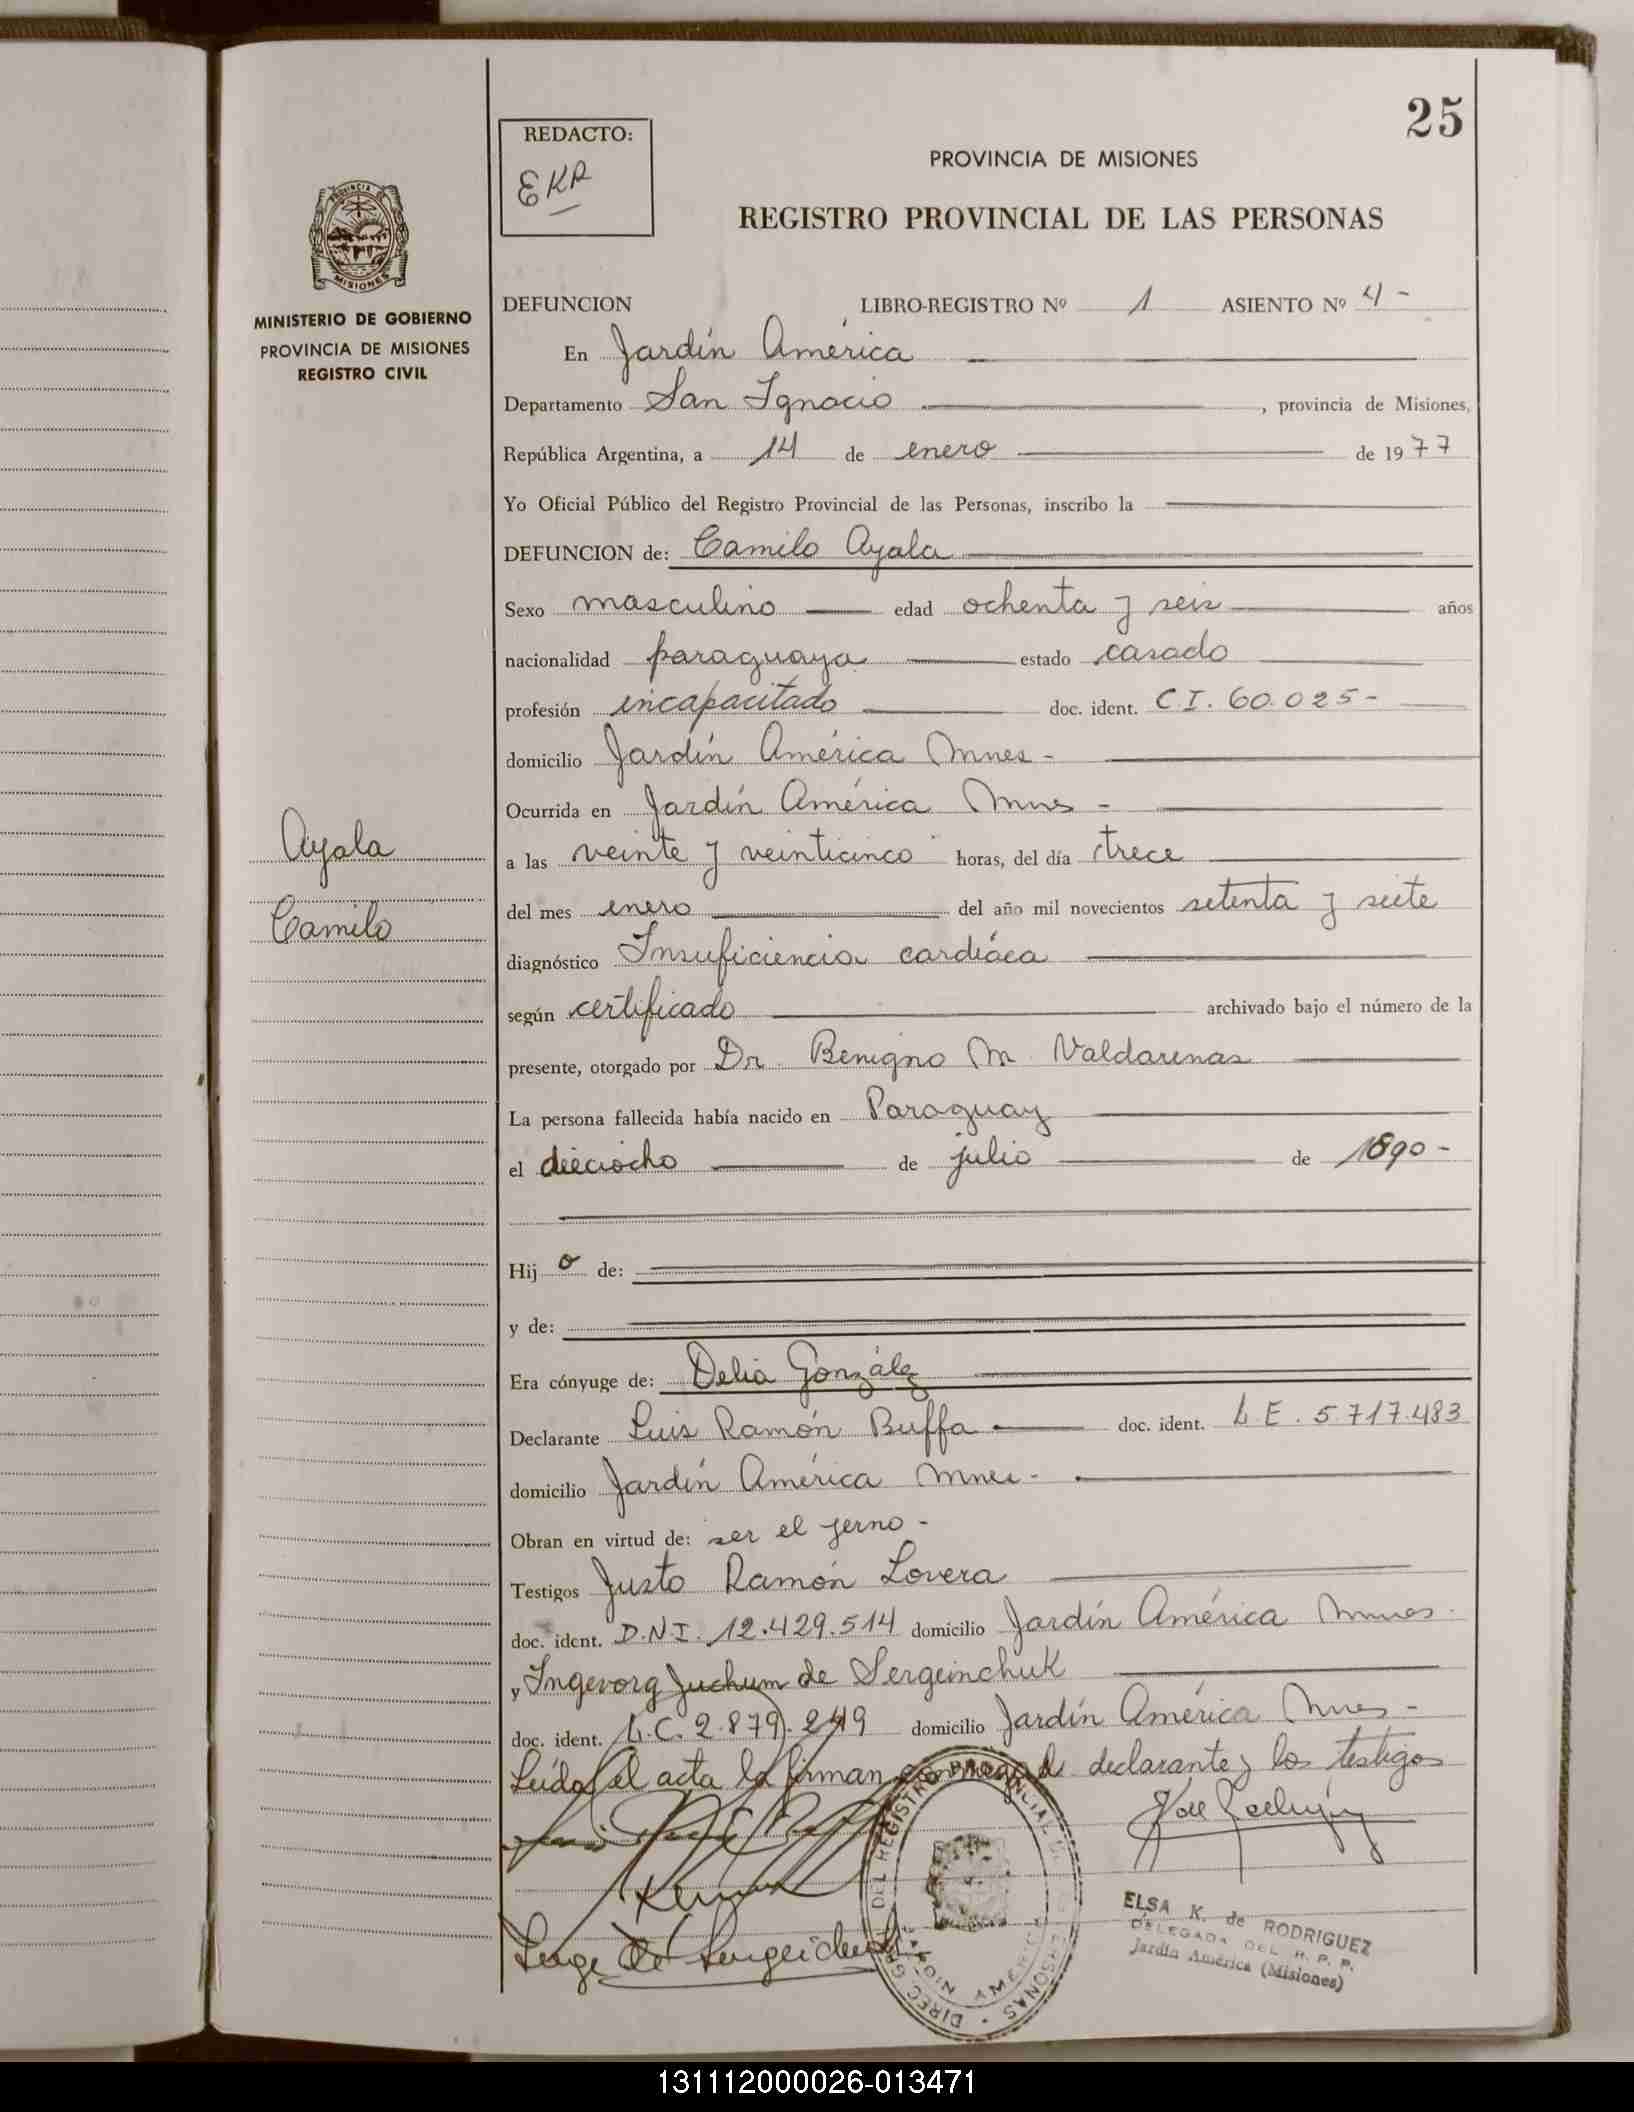 25
REDACTO:
EKR
PROVINCIA DE MISIONES
REGISTRO PROVINCIAL DE LAS PERSONAS
PROVINCIA DE
MISIONES
MINISTERIO DE GOBIERNO
PROVINCIA DE MISIONES
REGISTRO CIVIL
DEFUNCION LIBRO-REGISTRO Nº 1 ASIENTO Nº 4-
En Jardín América
Departamento San Ignacio, provincia de Misiones,
República Argentina, a 14 de enero de 1977
Yo Oficial Público del Registro Provincial de las Personas, inscribo la
DEFUNCION de: Camilo Ayala
Sexo masculino edad ochenta y seis años
nacionalidad paraguaya estado casado
profesión incapacitado doc. ident. C.I. 60.025-
domicilio Jardín América Mnes-
Ocurrida en Jardín América Mnes-
Ayala
a las veinte y veinticinco horas, del día trece
Camilo
del mes enero del año mil novecientos setenta y siete
diagnóstico Insuficiencia cardíaca
según certificado archivado bajo el número de la
presente, otorgado por Dr. Benigno M. Valdarenas
La persona fallecida había nacido en Paraguay
el dieciocho de julio de 1890-
Hijo de:
y de:
Era cónyuge de: Delia González
Declarante Luis Ramón Buffa doc. ident. L.E. 5.717.483
domicilio Jardín América Mnes-
Obran en virtud de: ser el yerno-
Testigos Justo Ramón Lovera
doc. ident. D.N.I. 12.429.514 domicilio Jardín América Mnes.
y Ingevorg Juchum de Sergeinchuk
doc. ident. L.C. 2.879.249 domicilio Jardín América Mnes-
Leída el acta la firman conmigo el declarante y los testigos
DIREC. GRAL. DEL REGISTRO PROVINCIAL DE LAS PERSONAS
JARDIN AMERICA
ELSA K. de RODRIGUEZ
DELEGADA DEL R. P. P.
Jardín América (Misiones)
131112000026-013471